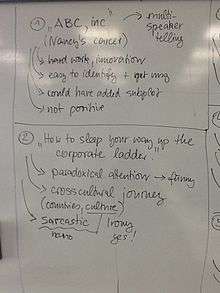 1 "ABC, inc" → multi-
(Nancy's career) speaker
telling
hard work, innovation
easy to identify + get mg
could have added subplot
not positive
2 "How to sleep your way up the
corporate ladder"
paradoxical attention → funny
crosscultural journey
(countries, culture)
Sarcastic / Irony
yes!